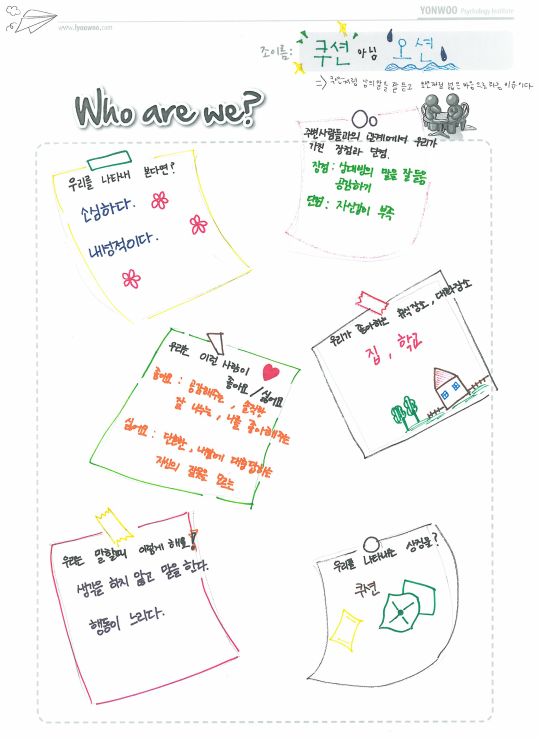 YONWOO Psychology Institute
www.lyonwoo.com
조이름: 쿠션 아님 오션
Who are we?
우리를 나타내 본다면?
소심하다.
내성적이다.
주변사람들과의 관계에서 우리가
가진 장점과 단점.
장점 : 상대방의 말을 잘 들음
공감하기
단점 : 자신감이 부족
우리는 이런 사람이
좋아요 / 싫어요
좋아요 : 공감해주는, 솔직한
잘 나누는, 나를 좋아해주는
싫어요 : 단호한,
자신의 잘못을 모르는
우리가 좋아하는 휴식장소, 대화장소
집, 학교
우리는 말할때 이렇게 해요!
생각을 하지 않고 말을 한다.
행동이 느리다.
우리를 나타내는 상징물?
쿠션